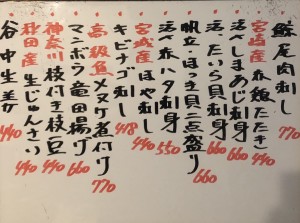 鯨尾肉刺し 770
宮崎産 赤鶏たたき 440
活〆しまあじ刺身 660
活〆たいら貝刺身 660
帆立・ほっき貝二点盛り 660
活〆赤ハタ刺身 550
宮城産 ほや刺し 440
キビナゴ刺し 418
高級魚 メヌケ煮付け 770
マンボウ竜田揚げ 660
神奈川 枝付き枝豆 440
秋田産 生じゅんさい 440
谷中生姜 440